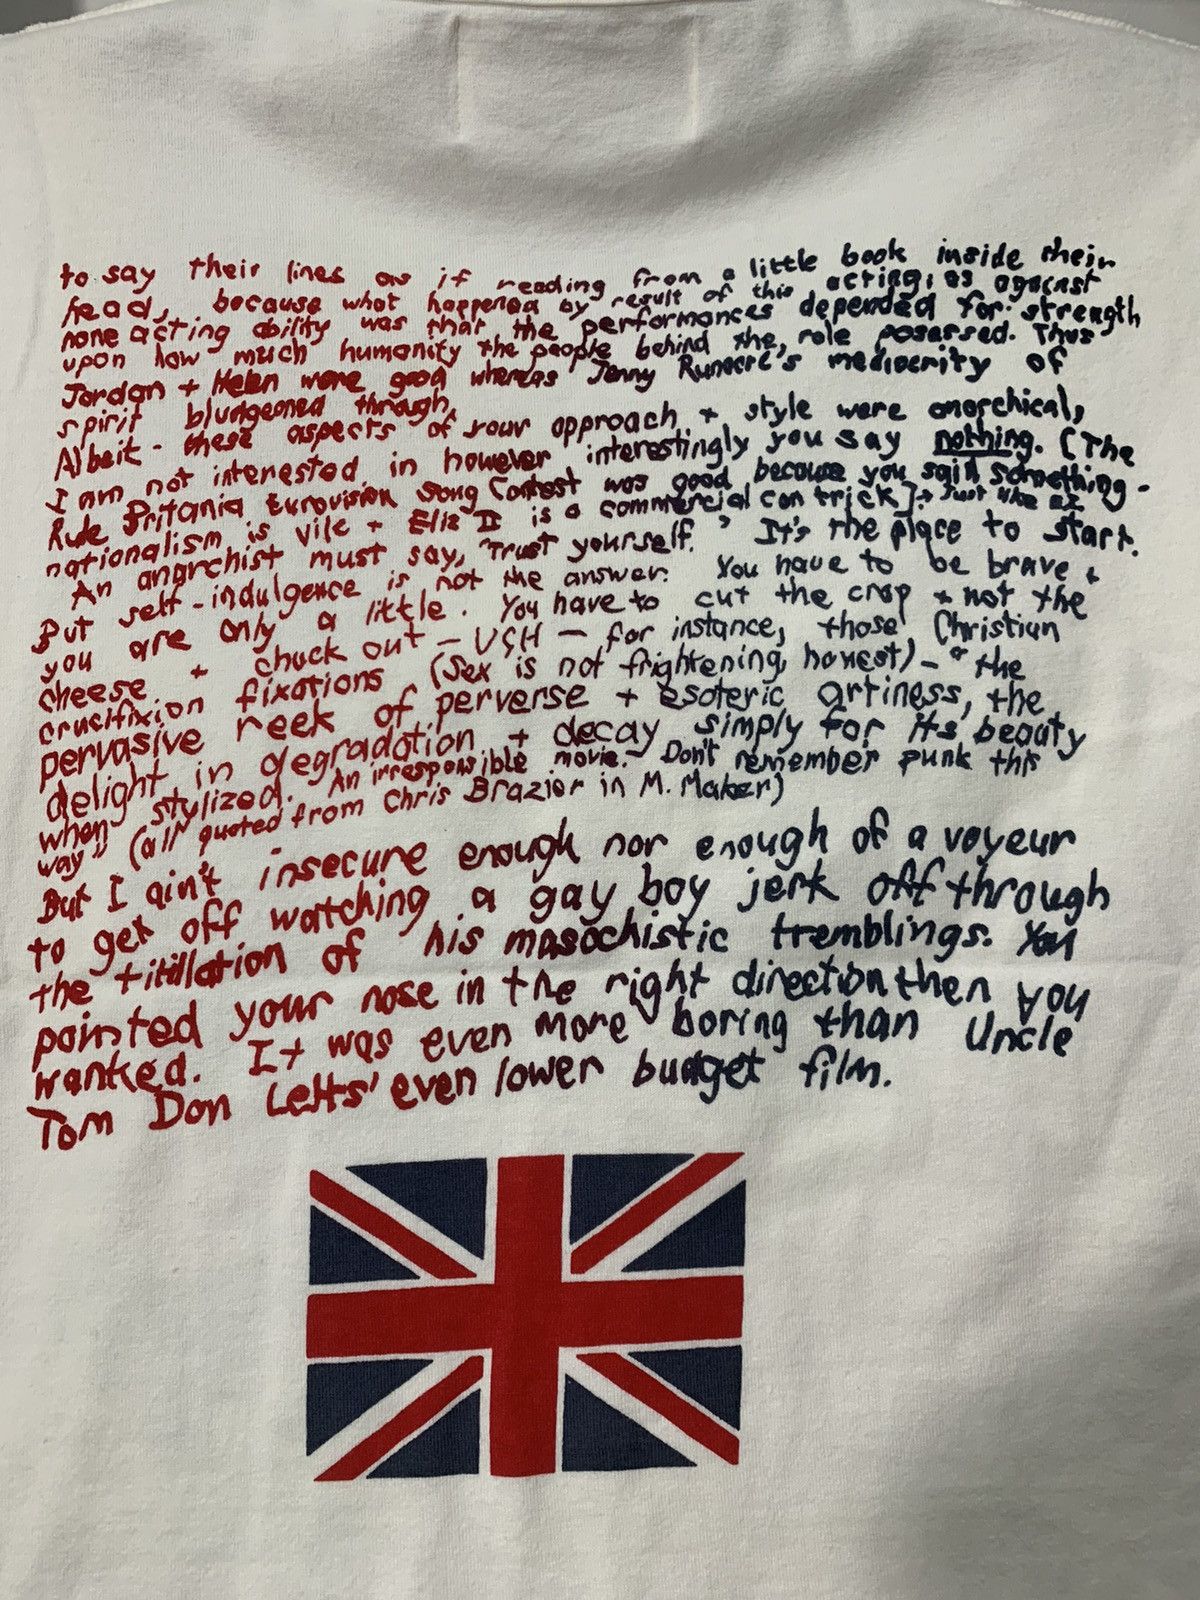 to say their lines as if reading from a little book inside their
head, because what happened by result of this acting, as against
none acting ability was that the performances depended for strength
upon how much humanity the people behind the role posessed. Thus
Jordan + Helen were good whereas Jenny Runacre's mediocrity of
spirit bludgeoned through.
Albeit - these aspects of your approach + style were anarchical,
I am not interested in however interestingly you say nothing. (The
Rule Britania Eurovision Song Contest was good because you said something -
nationalism is vile + Eliz II is a commercial con trick] + Just like
An anarchist must say, "Trust yourself." It's the place to start.
But self-indulgence is not the answer. You have to be brave +
you are only a little. You have to cut the crap + not the
cheese + chuck out - UGH - for instance, those Christian
crucifixion fixations (Sex is not frightening, honest) - "the
pervasive reek of perverse + esoteric artiness, the
delight in degradation + decay simply for its beauty
when stylized. An irresponsible movie. Don't remember punk this
way" (all quoted from Chris Brazier in M. Maker)
But I ain't insecure enough nor enough of a voyeur
to get off watching a gay boy jerk off through
the titillation of his masochistic tremblings. You
pointed your nose in the right direction then you
wanked. It was even more boring than Uncle
Tom Don Letts' even lower budget film.